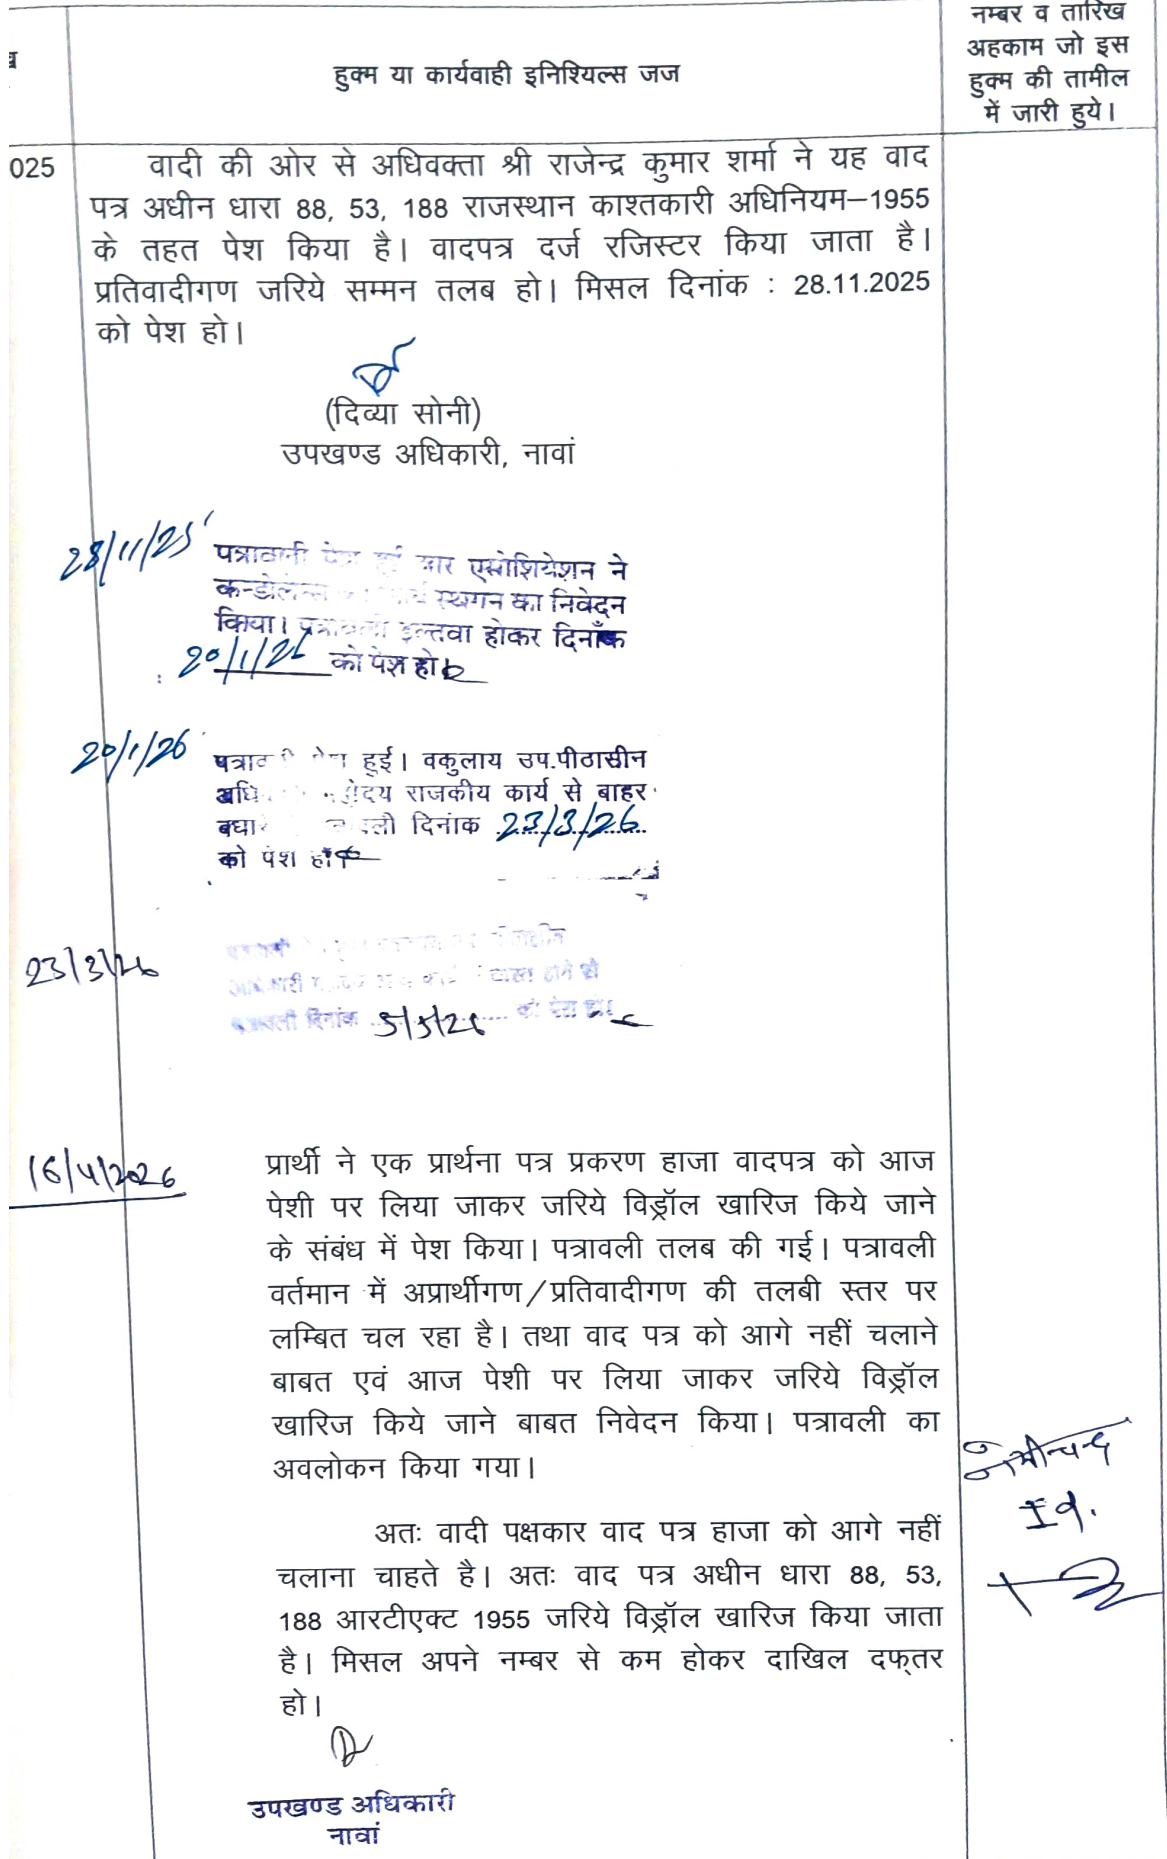 नम्बर व तारिख
अहकाम जो इस
हुक्म की तामील
में जारी हुये।
हुक्म या कार्यवाही इनिश्यिल्स जज
025
वादी की ओर से अधिवक्ता श्री राजेन्द्र कुमार शर्मा ने यह वाद
पत्र अधीन धारा 88, 53, 188 राजस्थान काश्तकारी अधिनियम–1955
के तहत पेश किया है। वादपत्र दर्ज रजिस्टर किया जाता है।
प्रतिवादीगण जरिये सम्मन तलब हो। मिसल दिनांक : 28.11.2025
को पेश हो।
(दिव्या सोनी)
उपखण्ड अधिकारी, नावां
28/11/25
पत्रावली पेश हुई बार एसोशियेशन ने
स्थगन का निवेदन
किया। पत्रावली इल्तवा होकर दिनाँक
20/1/26 को पेश हो।
20/1/26
पत्रावली पेश हुई। वकुलाय उप.पीठासीन
महोदय राजकीय कार्य से बाहर
दिनांक 23/3/26
को पेश हो
23/3/26
होने से
पत्रावली दिनांक 5/5/26 को पेश हो।
16/4/2026
प्रार्थी ने एक प्रार्थना पत्र प्रकरण हाजा वादपत्र को आज
पेशी पर लिया जाकर जरिये विड्रॉल खारिज किये जाने
के संबंध में पेश किया। पत्रावली तलब की गई। पत्रावली
वर्तमान में अप्रार्थीगण/प्रतिवादीगण की तलबी स्तर पर
लम्बित चल रहा है। तथा वाद पत्र को आगे नहीं चलाने
बाबत एवं आज पेशी पर लिया जाकर जरिये विड्रॉल
खारिज किये जाने बाबत निवेदन किया। पत्रावली का
अवलोकन किया गया।
अतः वादी पक्षकार वाद पत्र हाजा को आगे नहीं
चलाना चाहते है। अतः वाद पत्र अधीन धारा 88, 53,
188 आरटीएक्ट 1955 जरिये विड्रॉल खारिज किया जाता
है। मिसल अपने नम्बर से कम होकर दाखिल दफ्तर
हो।
उपखण्ड अधिकारी
नावां